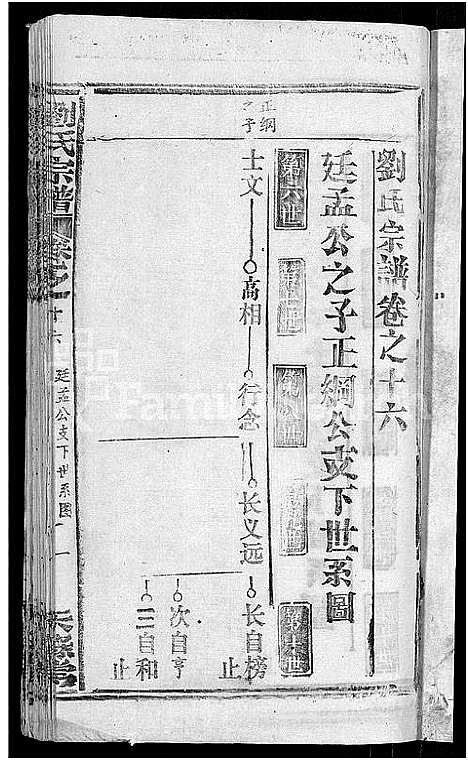 劉氏宗譜卷之十六
廷孟公之子正綱公支下世系圖
正纲
之子
第十六世
士文
高相
行念
长义远
长自榜
止
次自亨
三自和
止
劉氏宗譜
卷之十六
廷孟公支下世系图
一